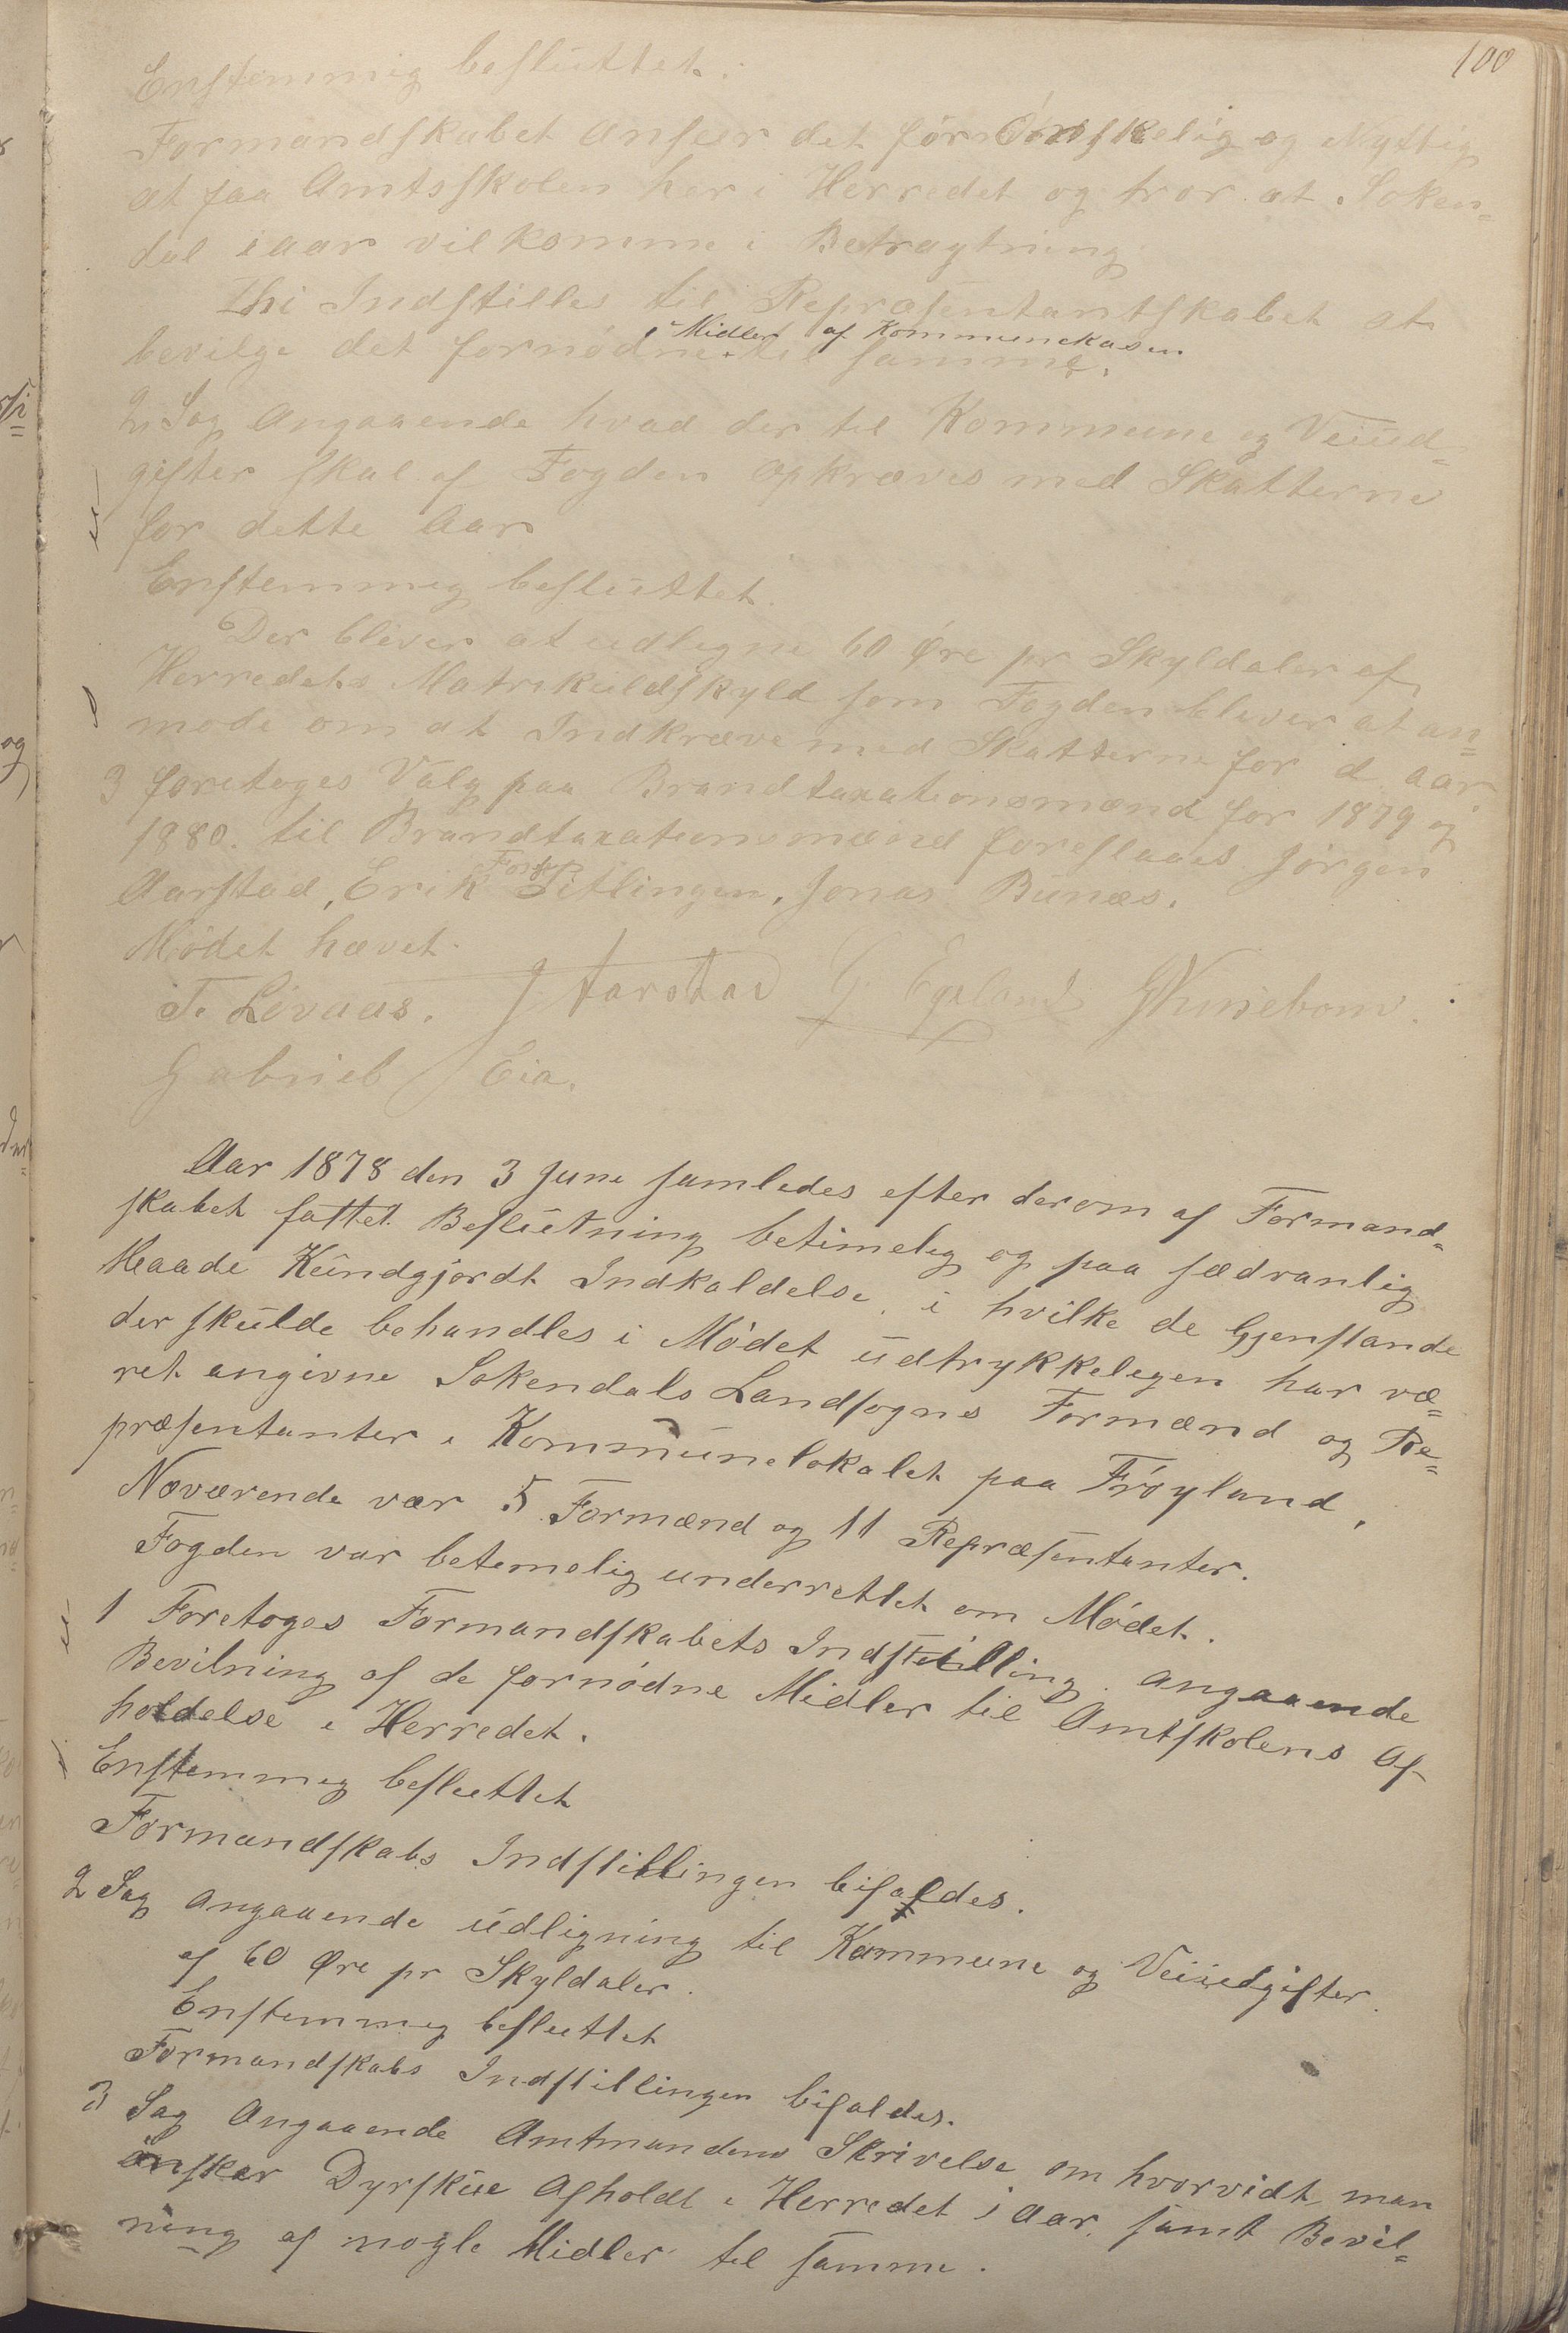 100
Enstemmig besluttet.
Formandskabet Anseer det for Ønskelig og Nyttig
at faa Amtsskolen her i Herredet og tror at Soken-
dal iaar vil komme i Betragtning
Thi Indstilles til Repræsentantskabet at
Midler af Kommunekasen
bevilge det fornødne til samme.
2 Sag Angaaende hvad der til Kommune og Veiud-
gifter skal af Fogden Opkræves med Skatterne
for dette Aar
Enstemmig besluttet.
Der bliver at udlegne 60 Øre pr Skyldaler af
Herredets Matrikuldskyld som Fogden bliver at an=
mode om at Indkræve med Skatterne for d. aar.
3 foretoges Valg paa Brandtaxationsmænd for 1879 og
1880. til Brandtaxationsmænd foreslaaes Jørgen
Aarstad, Erik Fitlingen, Jonas Bunæs.
Mødet hævet.
T. Livaas. J Aarstad G. Egeland
Gabriel Eia.
Aar 1878 den 3 June samledes efter derom af Formand=
skabet fattet Beslutning betimelig og paa sædvanlig
Maade Kundgjordt Indkaldelse, i hvilke de Gjenstande
der skulde behandles i Mødet udtrykkelegen har væ=
ret angivne Sokendals Landsogns Formænd og Re=
præsentanter i Kommunelokalet paa Frøyland,
Nøværende var 5 Formænd og 11 Repræsentanter.
Fogden var betemelig underrettet om Mødet.
1 Foretoges Formandskabets Indstilling angaaende
Bevilning af de fornødne Midler til Amtskolens Af-
holdelse i Herredet.
Enstemmeg besluttet
Formandskabs Indstillingen bifaldes.
2 Sag Angaaende udligning til Kommune og Veiudgifter
af 60 Øre pr Skyldaler.
Enstemmeg besluttet
Formandskabs Indstillingen bifaldes.
3 Sag Angaaende Amtmandens Skrivelse om hvorvidt man
ønsker Dyrskue Afholdt i Herredet i Aar, samt Bevil=
ning af nogle Midler til samme.